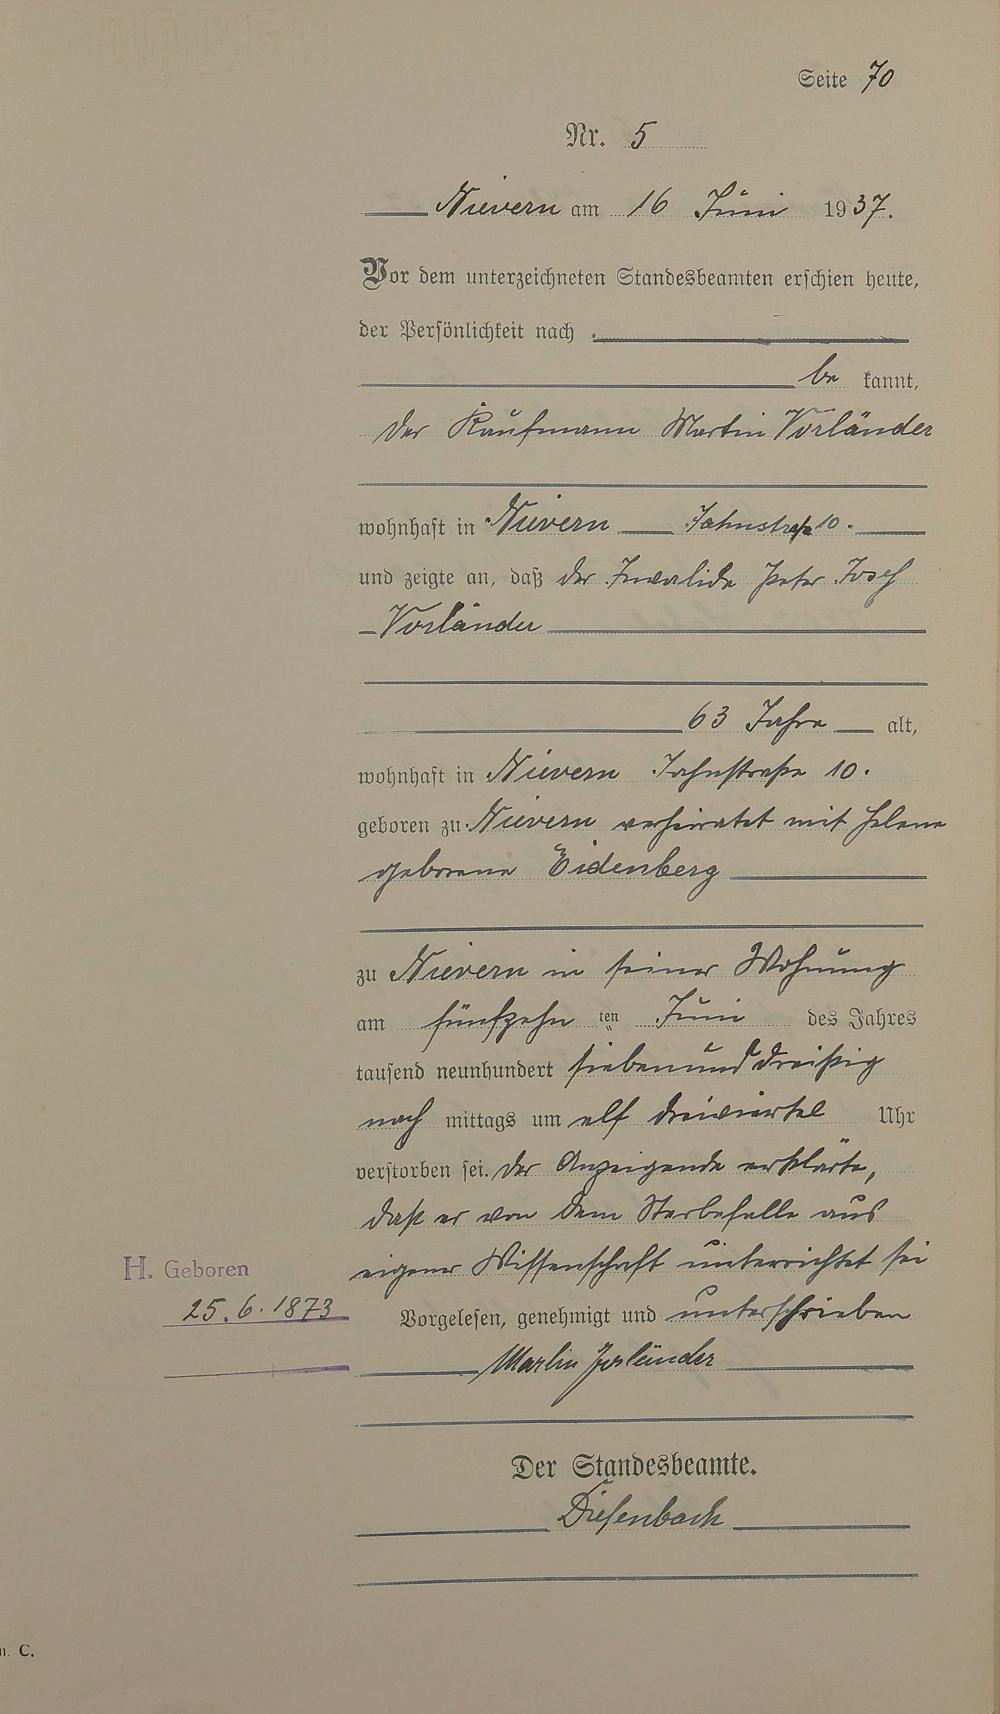 Seite 70
Nr. 5
Nievern am 16 Juni 1937.
Vor dem unterzeichneten Standesbeamten erschien heute,
der Persönlichkeit nach
be kannt,
der Kaufmann Martin Vorländer
wohnhaft in Nievern Jahnstraße 10.
und zeigte an, daß der Invalide Peter Josef
Vorländer
63 Jahre alt,
wohnhaft in Nievern Jahnstraße 10.
geboren zu Nievern verheiratet mit Helene
geborene Eidenberg
zu Nievern in seiner Wohnung
am fünfzehn ten Juni des Jahres
tausend neunhundert siebenunddreißig
nach mittags um elf dreiviertel Uhr
verstorben sei. Der Anzeigende erklärte,
daß er von dem Sterbefalle aus
eigener Wissenschaft unterrichtet sei
H. Geboren
25.6.1873
Vorgelesen, genehmigt und unterschrieben
Martin Vorländer
Der Standesbeamte.
Diefenbach
n. C.